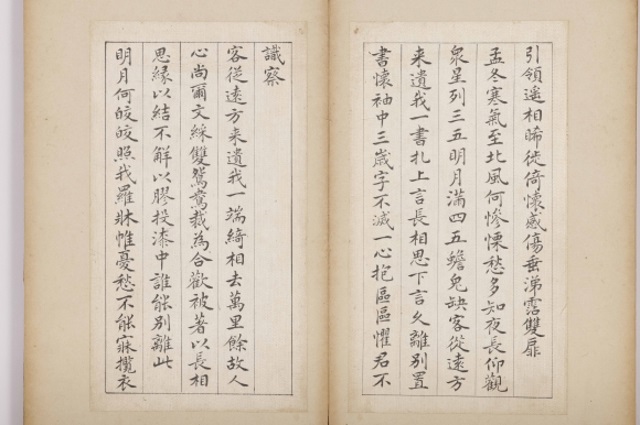 引領遥相睎徙倚懷感傷垂涕霑雙扉
孟冬寒氣至北風何慘慄愁多知夜長仰觀
衆星列三五明月滿四五蟾兔缺客從遠方
来遺我一書札上言長相思下言久離別置
書懷袖中三歲字不滅一心抱區區懼君不
識察
客從遠方来遺我一端綺相去萬里餘故人
心尚爾文綵雙鴛鴦裁為合歡被著以長相
思緣以結不解以膠投漆中誰能別離此
明月何皎皎照我羅牀帷憂愁不能寐攬衣